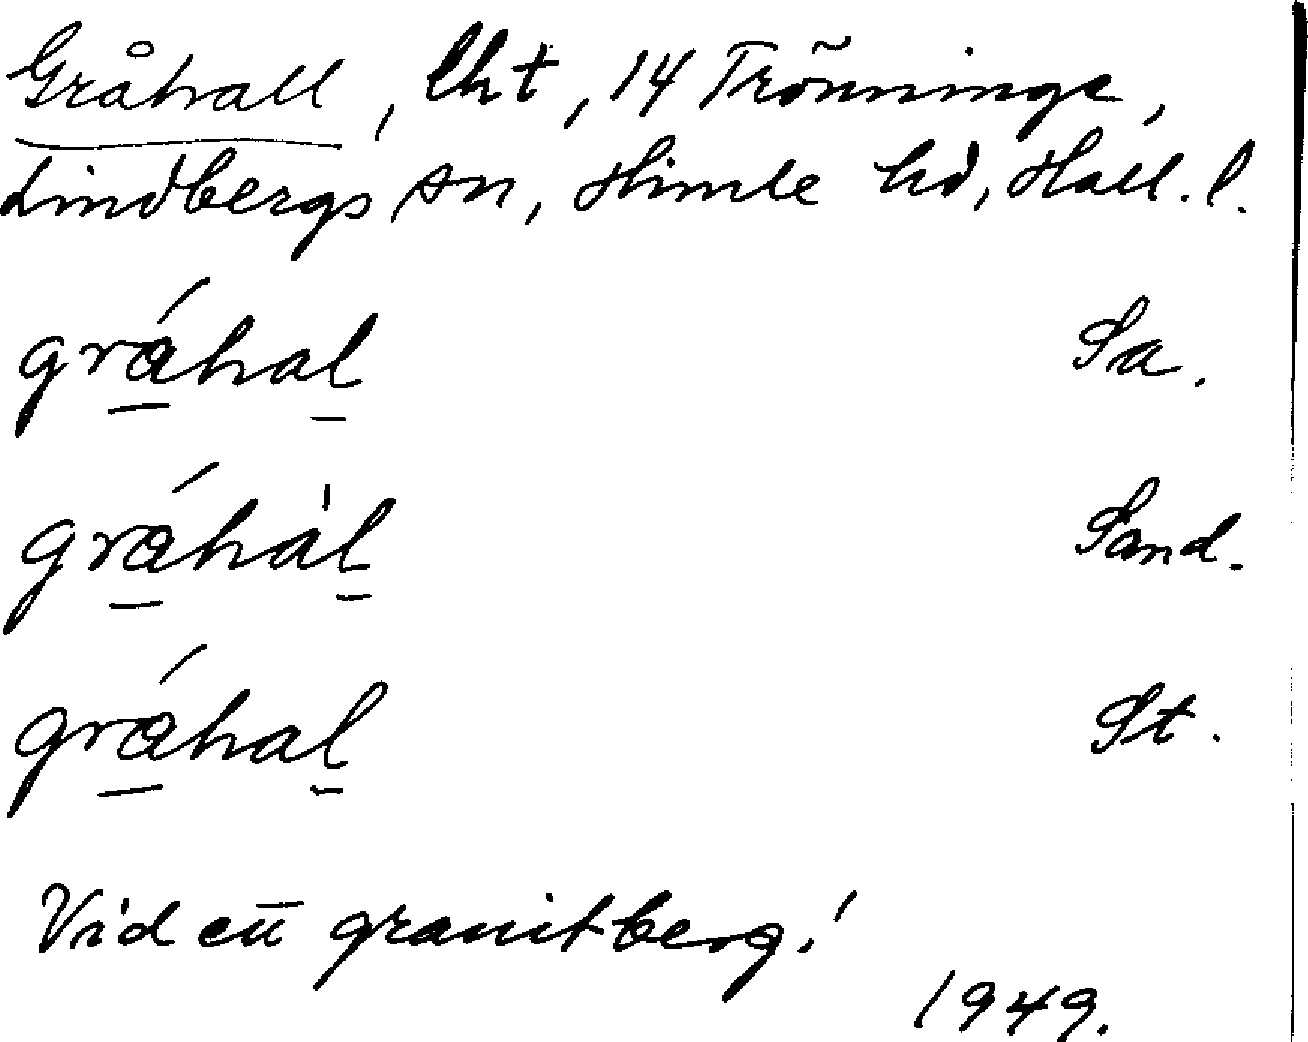 Gråhall, lht, 14 Trönninge,
Lindbergs sn, Himle hd, Hall. l.
grá̱hal̠ Sa.
grá̱hàl̠ Sand.
grá̱hal̠ St.
Vid ett granitberg!
1949.